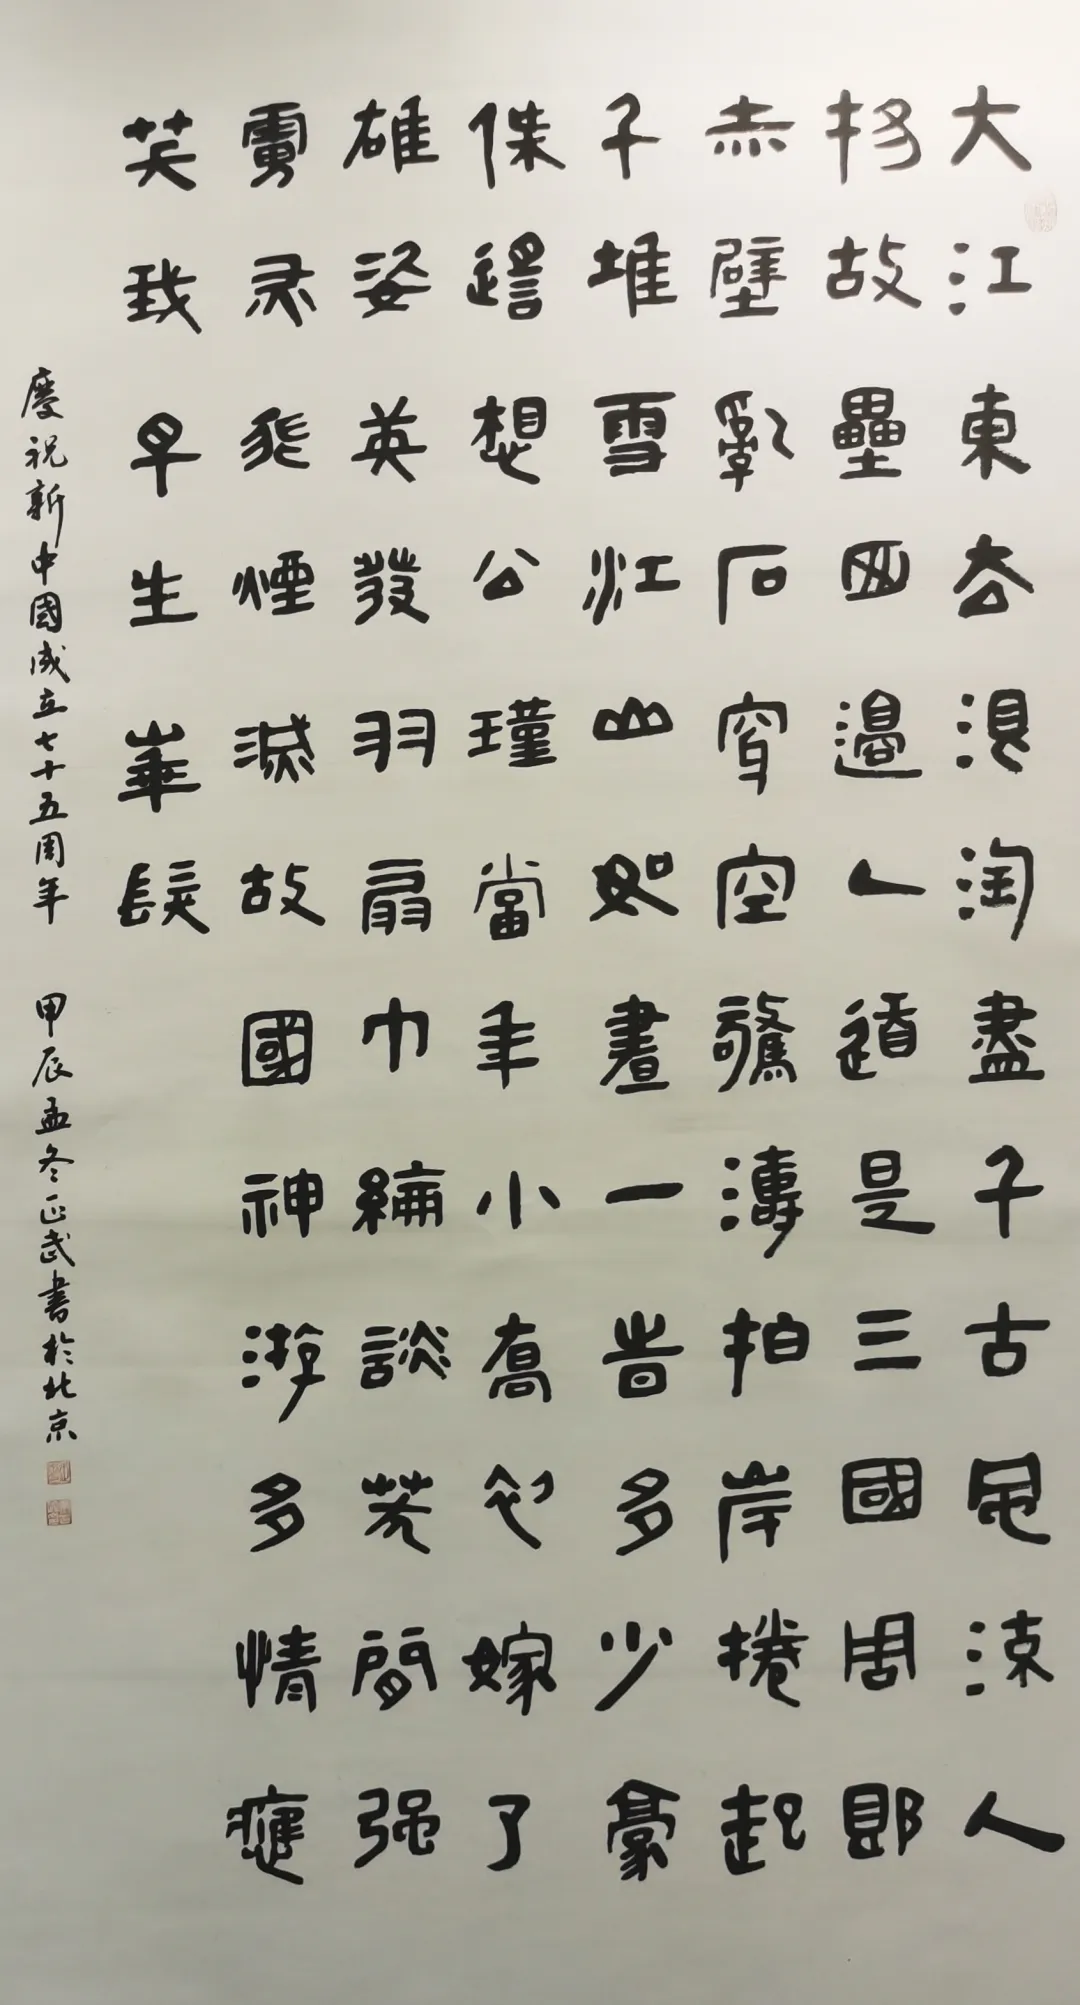 大江東去浪淘盡千古風流人
物故壘西邊人道是三國周郎
赤壁亂石穿空驚濤拍岸捲起
千堆雪江山如畫一時多少豪
傑遙想公瑾當年小喬初嫁了
雄姿英發羽扇巾綸談笑間强
虜灰飛煙滅故國神游多情應
笑我早生華髮
慶祝新中國成立七十五周年 甲辰孟冬正武書於北京